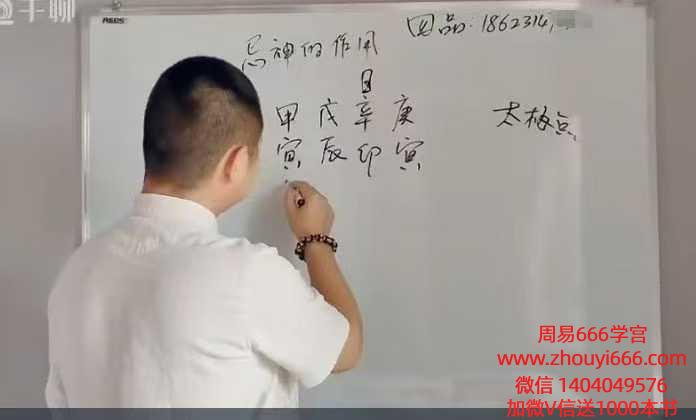 千聊
1862314
忌神的作用
日
甲 戊 辛 庚 太极点
寅 辰 卯 寅
周易666学宫
www.zhouyi666.com
微信 1404049576
加微V信送1000本书